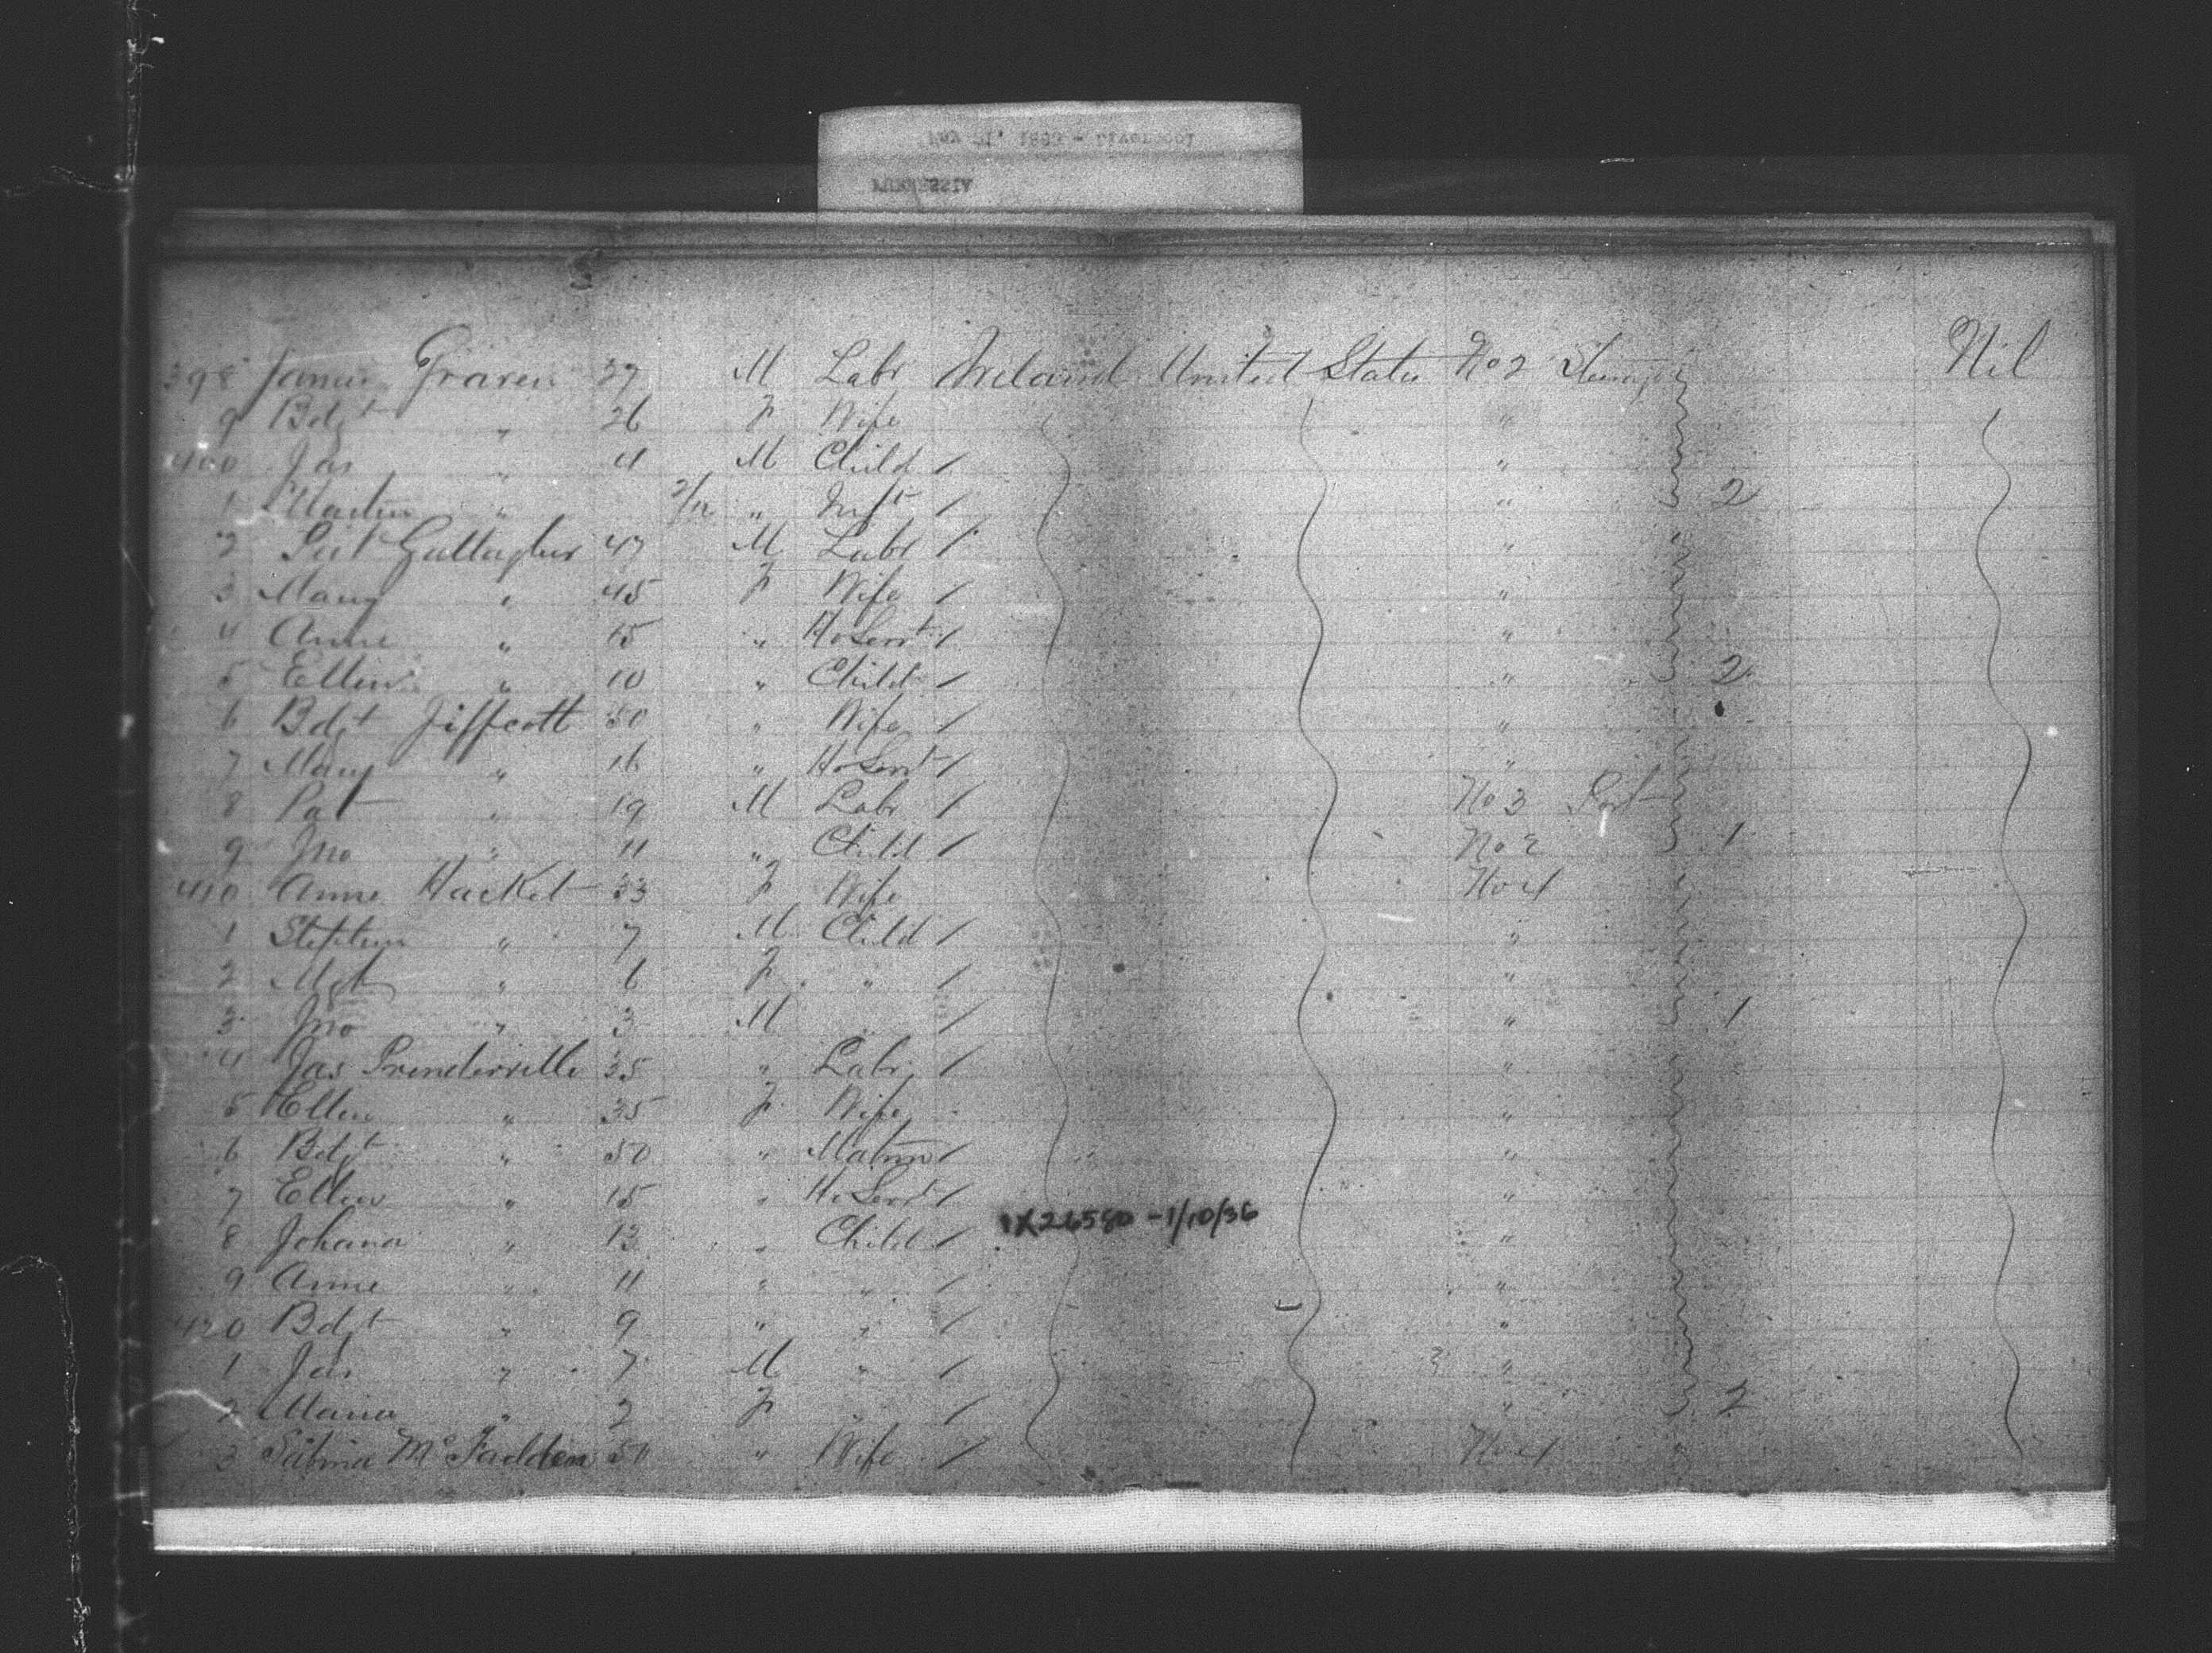 May 21, 1883 - Liverpool
FURNESSIA
398 James Graven 37 M Labr Ireland United States No 2 Steerage Nil
9 Bdgt " 26 F Wife "
400 Jas " 4 M Child / "
1 Martin " 2/12 " Inft / " 2
2 Pat Gallagher 47 M Labr / "
3 Mary " 45 F Wife / "
4 Anne " 15 " Ho Servt / "
5 Ellen " 10 " Child / " 2
6 Bdgt Jiffcott 50 " Wife / "
7 Mary " 16 " Ho Servt / "
8 Pat " 19 M Labr / No 3 Port
9 Jno " 11 " Child / No 2 1
410 Anne Hacket 33 F Wife No 4
1 Stephen " 7 M Child / "
2 Mgt " 6 F " / "
3 Jno " 3 M " / " 1
4 Jas Prenderville 35 " Labr / "
5 Ellen " 35 F Wife "
6 Bdgt " 50 " Matron / "
7 Ellen " 15 " Ho Servt / "
1X26580 - 1/10/36
8 Johana " 13 " Child / "
9 Anne " 11 " " / "
420 Bdgt " 9 " " / "
1 Jas " 7 M " / "
2 Maria " 2 F " / " 2
3 Sabina McFadden 50 " Wife / No 4 "